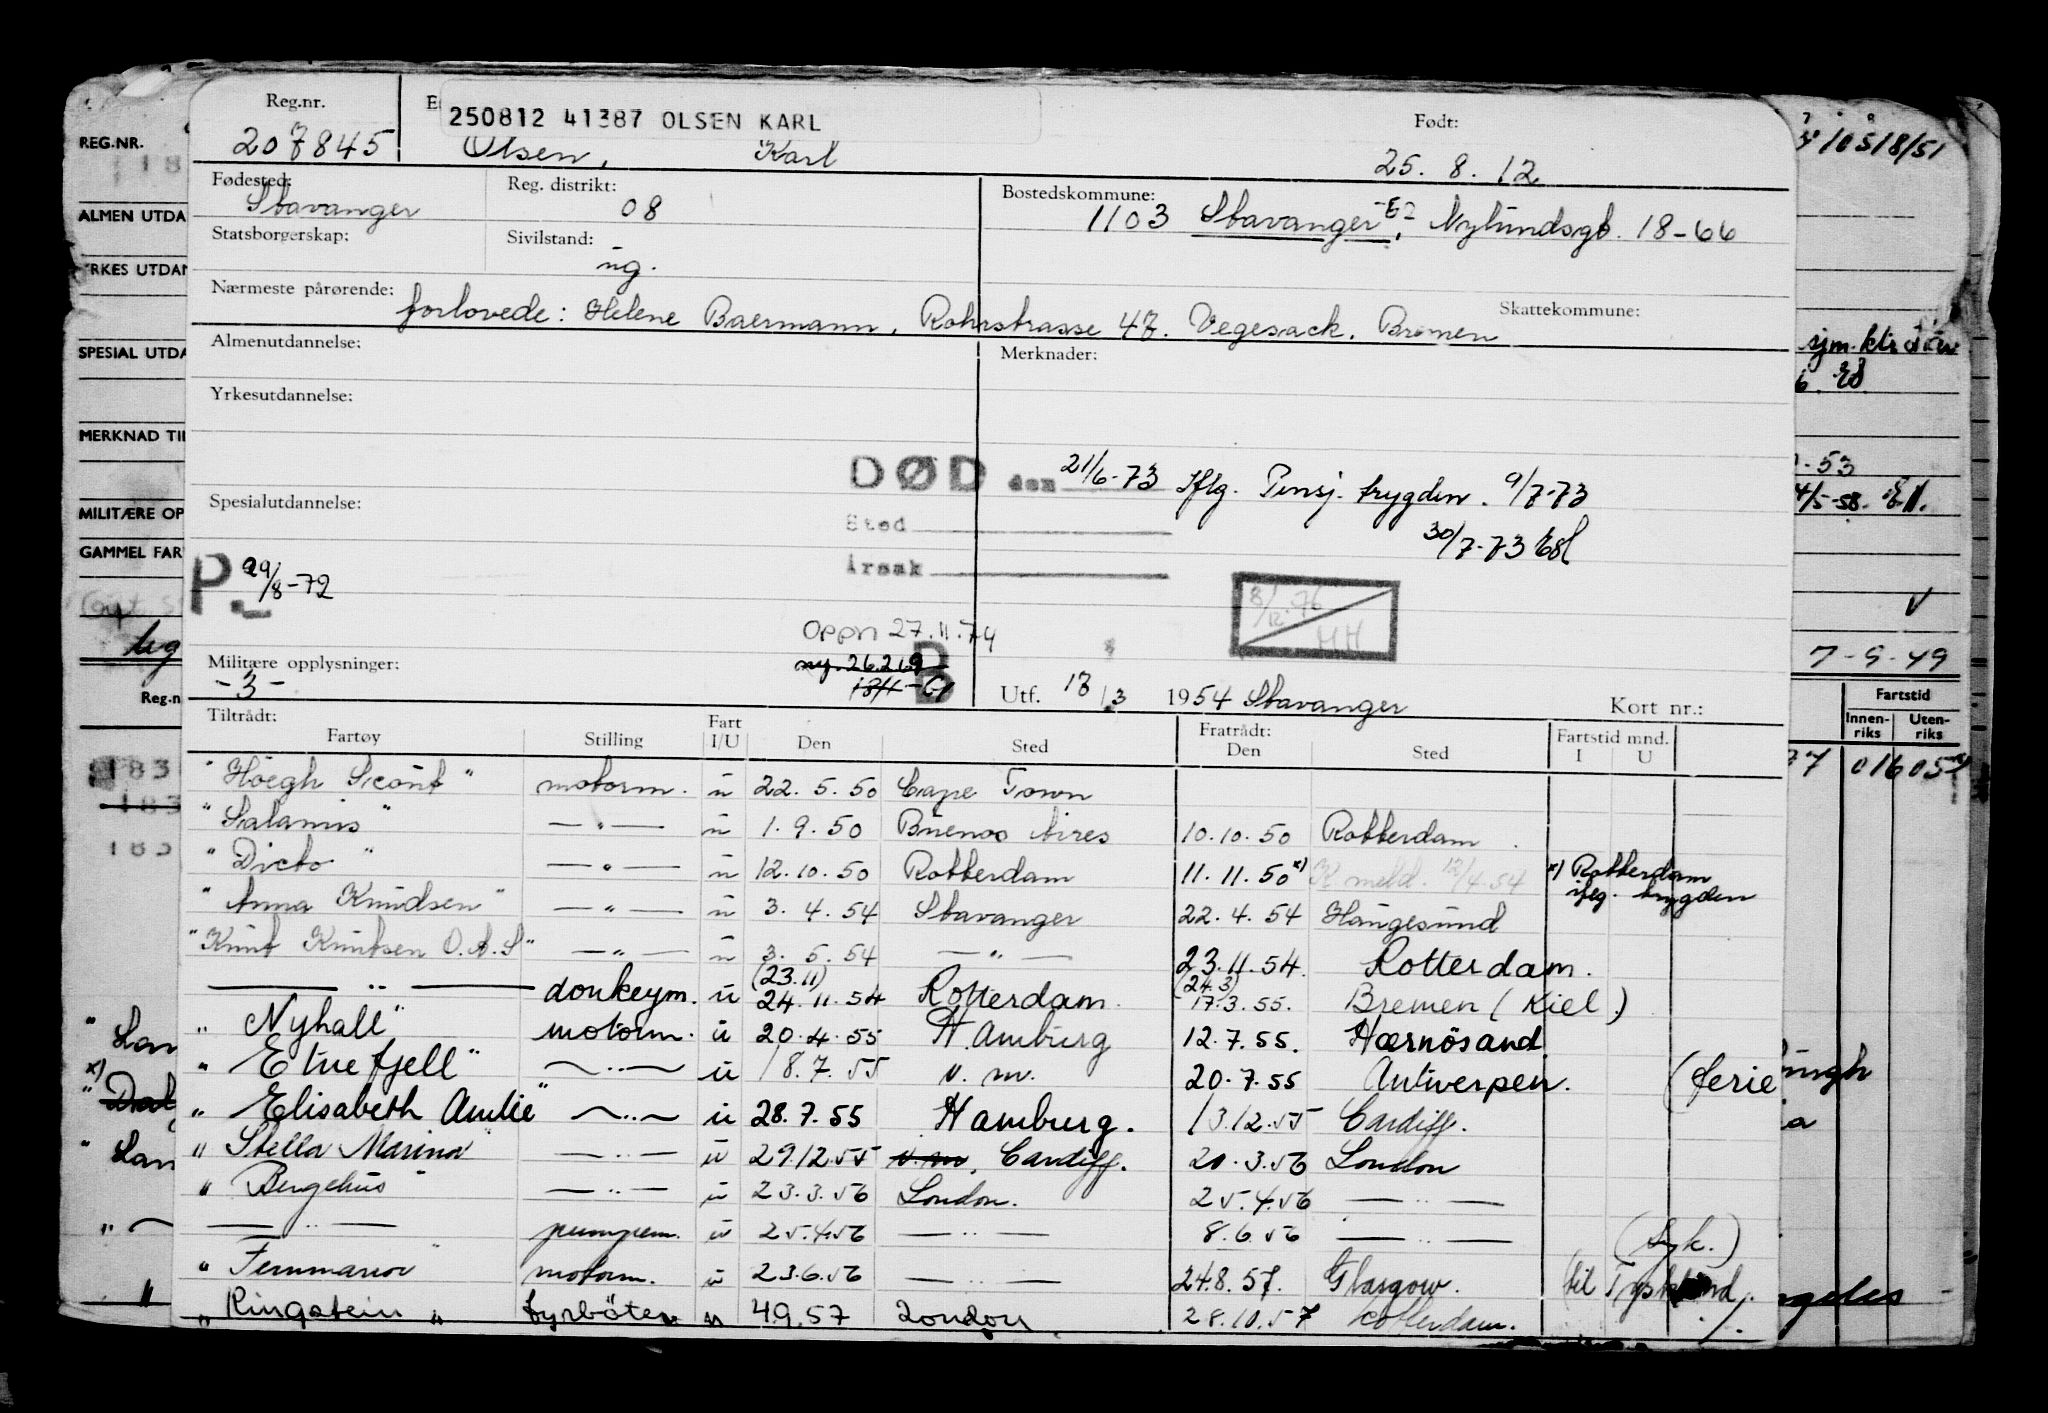 Reg.nr.
207845
250812 41387 OLSEN KARL
Olsen, Karl
Født:
25. 8. 12
Fødested:
Stavanger
Reg. distrikt:
08
Bostedskommune:
1103 Stavanger, Nylundsgt. 18-66
Statsborgerskap:
Sivilstand:
ug.
Nærmeste pårørende:
forlovede: Helene Baermann, Rohrstrasse 47. Vegesack. Bremen
Skattekommune:
Almenutdannelse:
Merknader:
Yrkesutdannelse:
DØD den 21/6-73 Iflg. Pensj. trygden. 9/7-73
Spesialutdannelse:
Sted
30/7-73
Årsak
P. 29/8-72
8/12-76
MH
Oppn 27.11.74
Militære opplysninger:
-3-
ny. 26.2.69
B
Utf. 13/3 1954 Stavanger
Kort nr.:
Tiltrådt:
Fartøy Stilling Fart I/U Den Sted Fratrådt: Den Sted Fartstid mnd. I U
"Höegh Scout" motorm. u 22. 5. 50 Cape Town
"Salamis" —"— u 1. 9. 50 Buenos Aires 10.10. 50 Rotterdam
"Dicto" —"— u 12. 10. 50 Rotterdam 11. 11. 50 x) K.meld. 12/4.54 x) Rotterdam iflg. trygden
"Anna Knudsen" —"— u 3. 4. 54 Stavanger 22. 4. 54 Haugesund
"Knut Knutsen O.A.S" —"— u 3. 5. 54 —"— 23. 11. 54. Rotterdam.
—"— donkeym. u (23.11) 24. 11. 54 Rotterdam. (24.3) 17.3. 55. Bremen (Kiel)
"Nyhall" motorm. u 20. 4. 55 Hamburg 12. 7. 55. Hærnösand
"Etnefjell" —"— u 18. 7. 55 v. m. 20. 7. 55 Antwerpen. (ferie
"Elisabeth Amlie" —"— u 28. 7. 55 Hamburg. 13.12.55 Cardiff.
"Stella Marina" —"— u 29.12.55 v.m, Cardiff. 20. 3. 56 London
"Bergehus —"— u 23. 3. 56 London. 25.4.56 —"—
—"— pumpem. u 25.4.56 —"— 8. 6. 56 —"— (syk.)
"Fernmanor" motorm. u 23.6.56 —"— 24.8. 57. Glasgow. (til Tyskland.)
"Ringstein" fyrböter u 4.9.57 London 28.10.57 Rotterdam.
REG.NR.
ALMEN UTDA
YRKES UTDAN
SPESIAL UTDA
MERKNAD TIL
MILITÆRE OP
GAMMEL FAR
Reg.n
183
183
183
sjm.ktr.
-53
4/5-58.
7-9-49
Fartstid
Innen-riks
Uten-riks